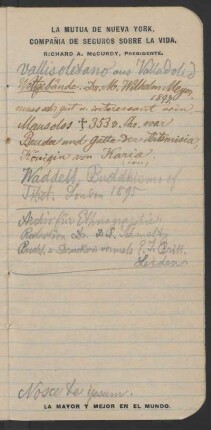 LA MUTUA DE NUEVA YORK,
COMPAÑIA DE SEGUROS SOBRE LA VIDA.
RICHARD A. McCURDY, PRESIDENTE.
Vallisoletano aus Valladolid
Dr. M. Wilhelm Meyer,
muss sehr gut u. interessant sein
Mausolos † 353 v. Chr. war
Bruder und Gatte der Artemisia,
Königin von Karia.
Waddell, Buddhism of
Tibet. London 1895
Archiv für Ethnographie
Redaktion Dr. D. Schmeltz
vormals P. J. Brill.
Leiden
Nosce te ipsum.
LA MAYOR Y MEJOR EN EL MUNDO.